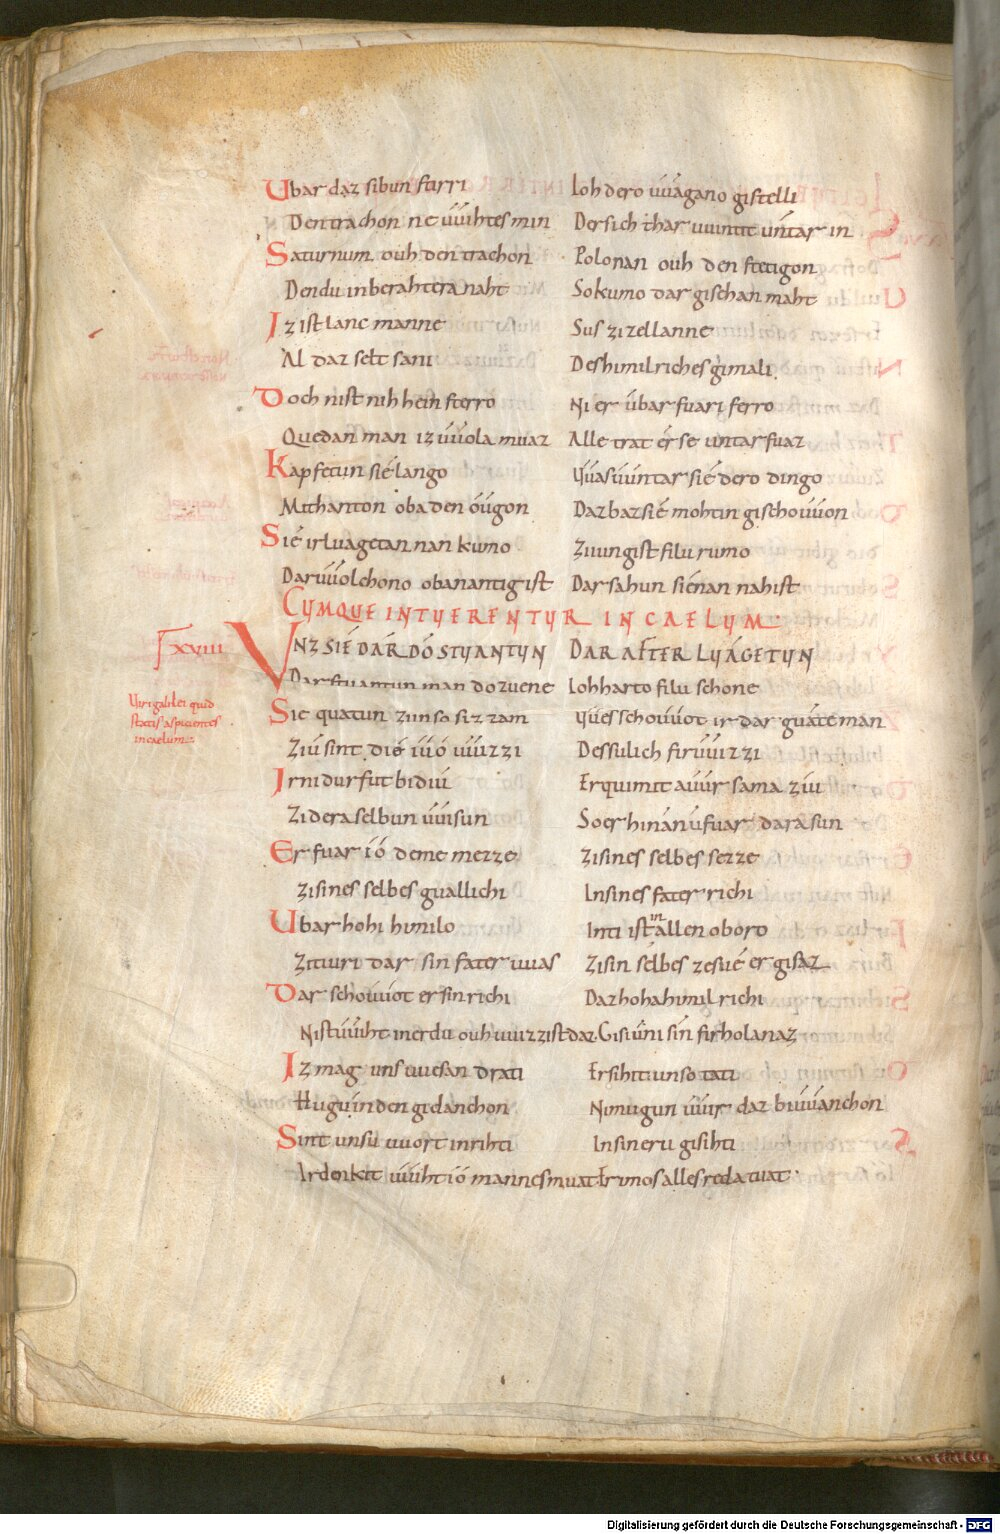 Ubar daz sibun stirri Ioh dero uuagano gistelli
Den trachon ne uuihtes min Der sich thar uuintit untar in
Saturnum ouh den trachon Polonan ouh den stetigon
Den du in berahtera naht So kumo dar gisehan maht
Iz ist lanc manne Sus zi zellanne
Al daz selt sani Des himilriches gimali
Doch nist nihhein sterro Ni er ubar fuari ferro
Quedan man iz uuola muaz Alle trat er se untar fuaz
Kapfetun sié lango Uuas uuntar sié dero dingo
Mit hanton oba den óugon Daz baz sié mohtin gischouuon
Sié irluagetan nan kumo Zi uun gist filu rumo
Dar uuolchono obanantig ist Dar sahun siénan nahist
CUMQUE INTUERENTUR IN CAELUM
XVIII
UNZ SIÉ DÁR DÓ STUANTUN DAR AFTER LUÁGETUN
Dar stuantun man do zuene Ioh harto filu schone
Uiri galilei quid
statis aspicientes
in caelum
Sie quatun zi in so siz zam Uues schouuot ir dar guate man
Ziu sint dié iuuó uuizzi Des sulich firuuizzi
Ir ni durfut bi diu Er quimit auur sama ziu
Zi dera selbun uuisun So er hinán ufuar dara sun
Er fuar ió deme mezze Zi sines selbes sezze
Zi sines selbes guallichi In sines fater richi
Ubar hohi himilo Inti ist in allen oboro
Zi tiuri dar sin fater uuas Zi sin selbes zesué er gisaz
Dar schouuot er sin richi Daz hoha himilrichi
Nist uuiht in erdu ouh uuizzist daz Gisiuni sin firholanaz
Iz mag uns uuesan drati Er sihit unso tati
Hugu in den gidanchon Ni mugun uuir daz biuuanchon
Sint unsu uuort in rihti In sineru gisihti
Ird enkit uuiht ió mannes muat Er imos alles reda tuat
Digitalisierung gefördert durch die Deutsche Forschungsgemeinschaft - DFG